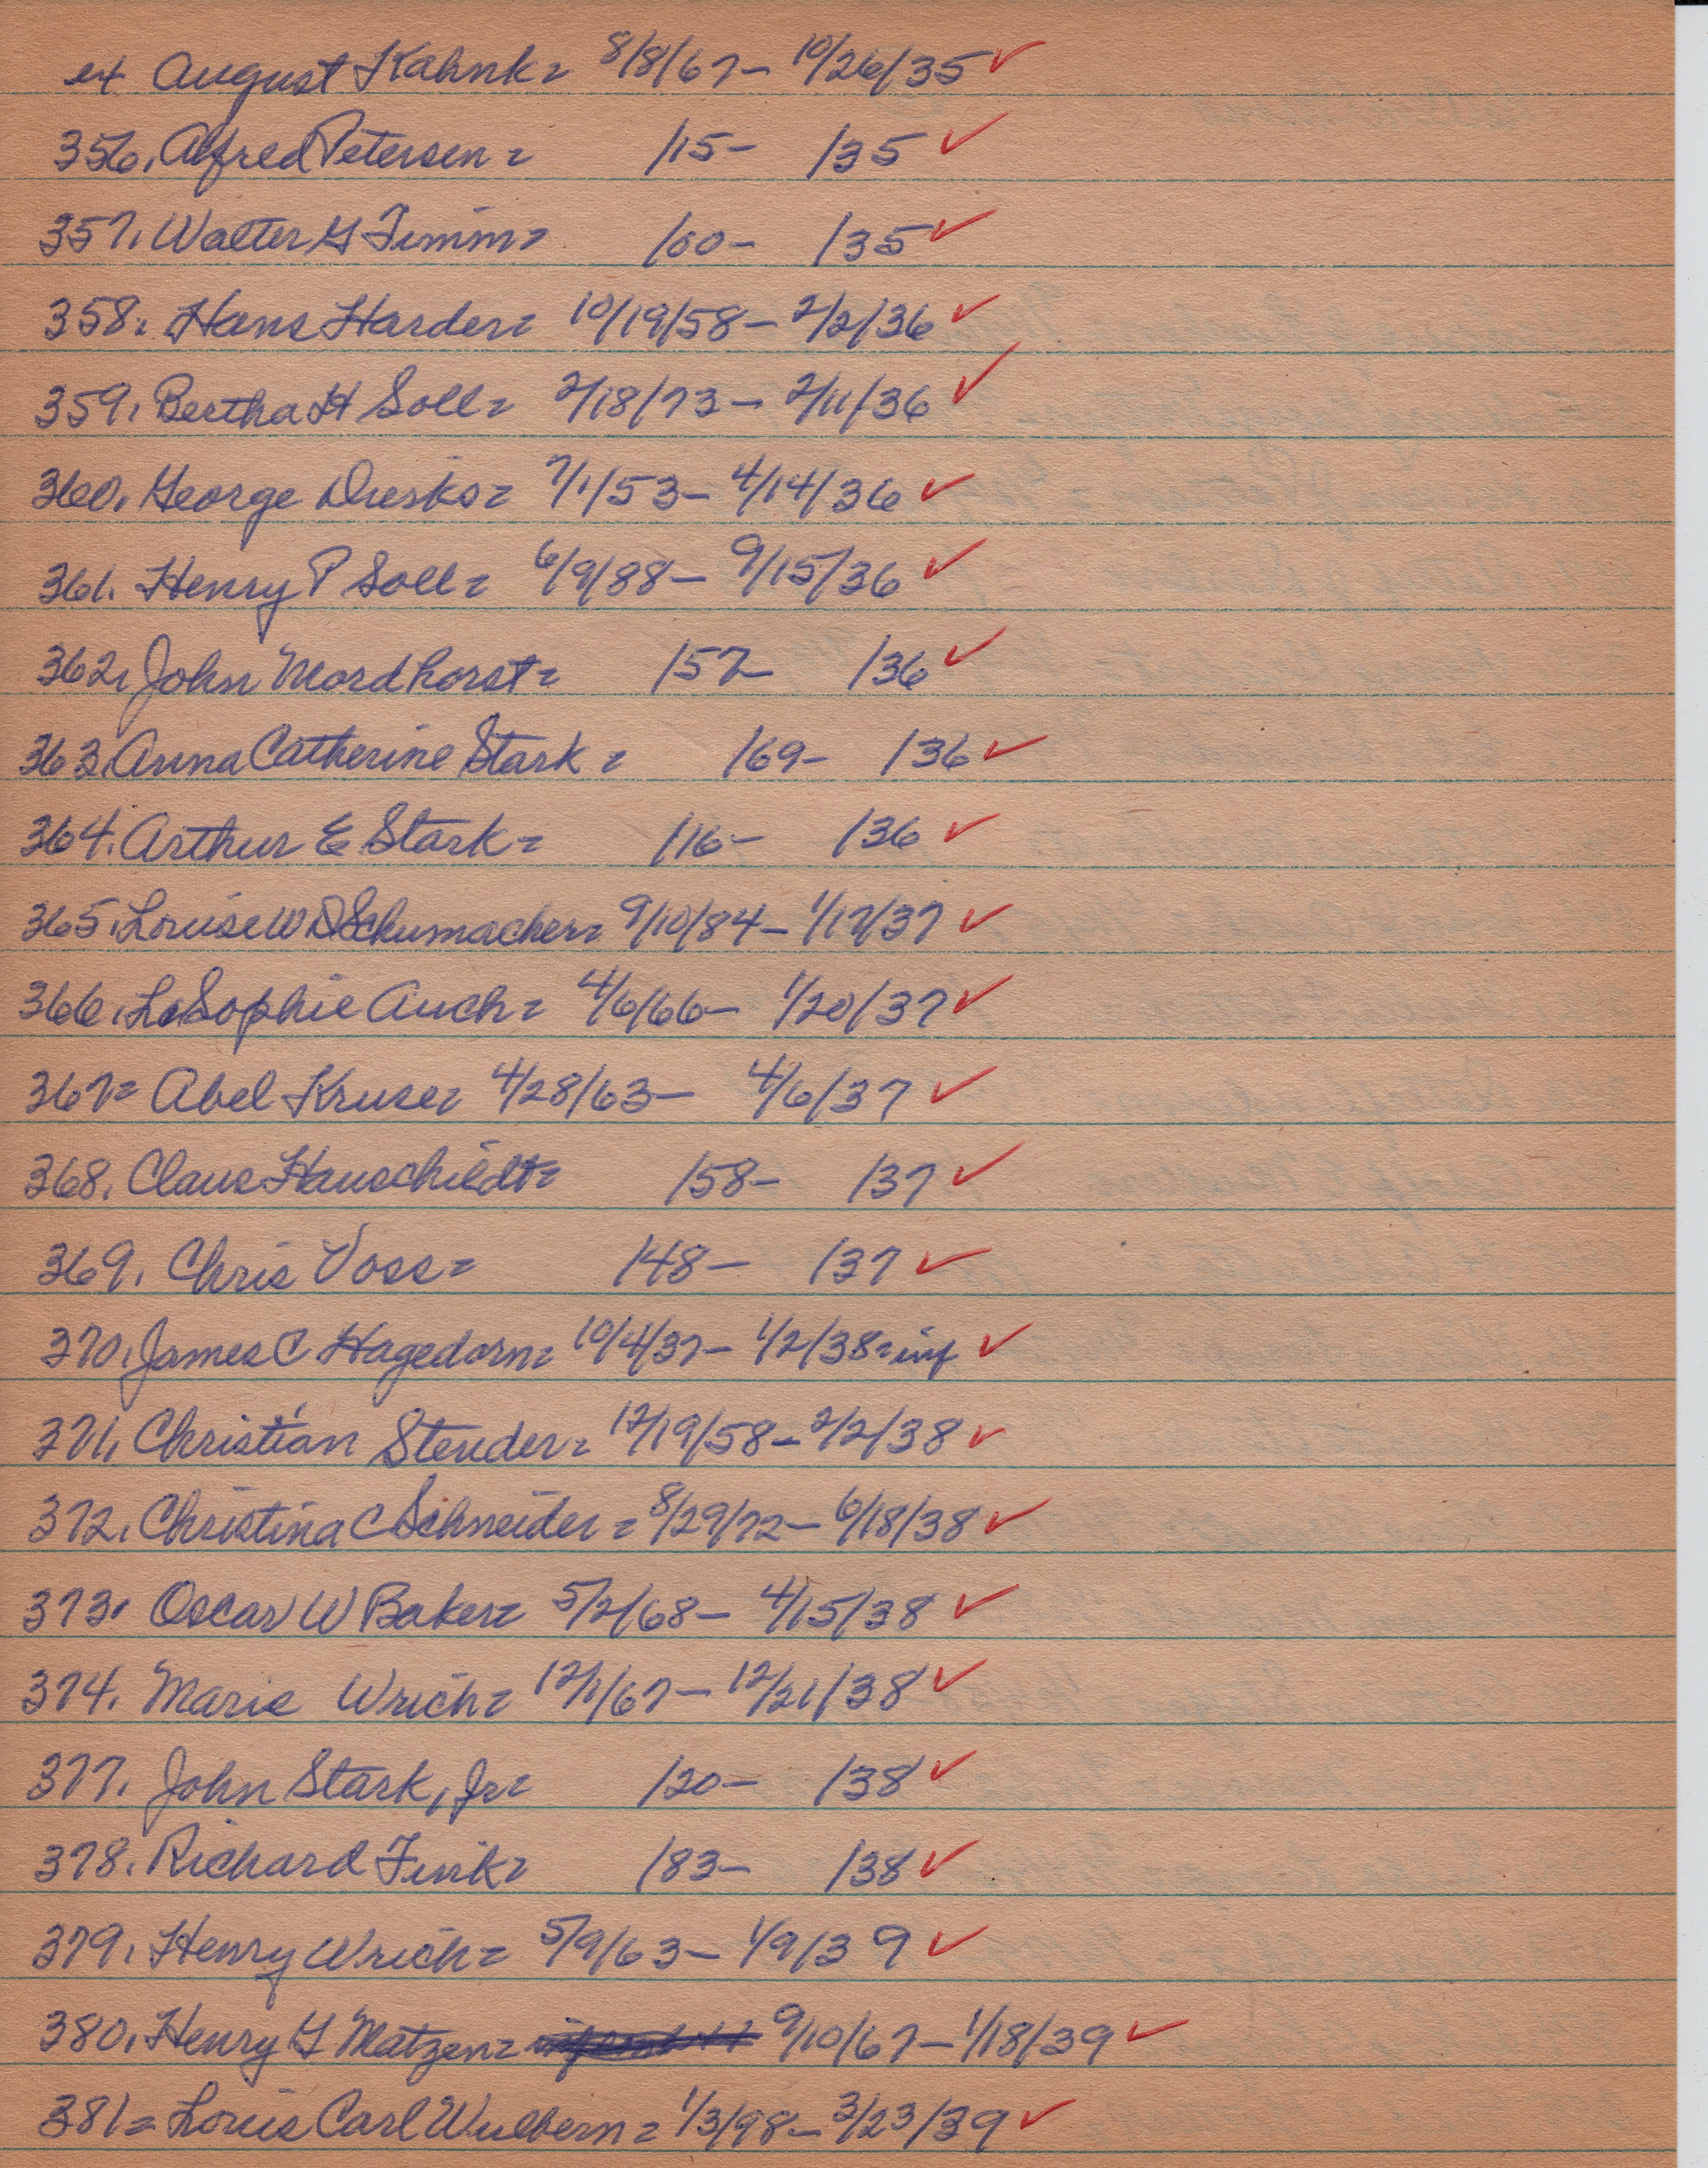 ex August Kahnk= 8/8/67- 10/26/35 ✓
356. Alfred Petersen= /15- /35 ✓
357. Walter G Timm= /00- /35 ✓
358. Hans Harder= 10/19/58- 2/2/36 ✓
359. Bertha H Soll= 2/18/73- 2/11/36 ✓
360. George Diesks= 7/1/53- 4/14/36 ✓
361. Henry P Soll= 6/9/88- 9/15/36 ✓
362. John Mordhorst= /57- /36 ✓
363. Anna Catherine Stark= /69- /36 ✓
364. Arthur E Stark= /16- /36 ✓
365. Louise W D Schumacher= 9/10/84- 1/17/37 ✓
366. Sophie Auch= 4/6/66- 1/20/37 ✓
367= Abel Kruse= 4/28/63- 4/6/37 ✓
368. Claus Hauschildt= /58- /37 ✓
369. Chris Voss= /48- /37 ✓
370. James C Hagedorn= 10/4/37- 1/2/38=inf ✓
371. Christian Steuder= 12/19/58- 2/2/38 ✓
372. Christina C Schneider= 8/29/72- 6/18/38 ✓
373. Oscar W Baker= 5/2/68- 4/15/38 ✓
374. Marie Wrich= 12/1/67- 12/21/38 ✓
377. John Stark, Jr= /20- /38 ✓
378. Richard Fink= /83- /38 ✓
379. Henry Wrich= 5/9/63- 1/9/39 ✓
380. Henry G Matzen= 9/10/67- 1/18/39 ✓
381= Louis Carl Wulbern= 1/3/98- 3/23/39 ✓